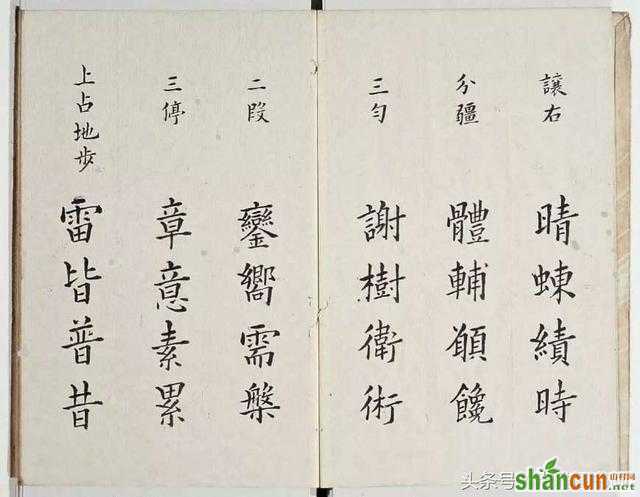 讓右
晴蝀績時
分疆
體輔願饞
三勻
謝樹衛術
二段
鑾嚮需槃
三停
章意素累
上占地步
雷皆普昔
头条号
shancun
.net